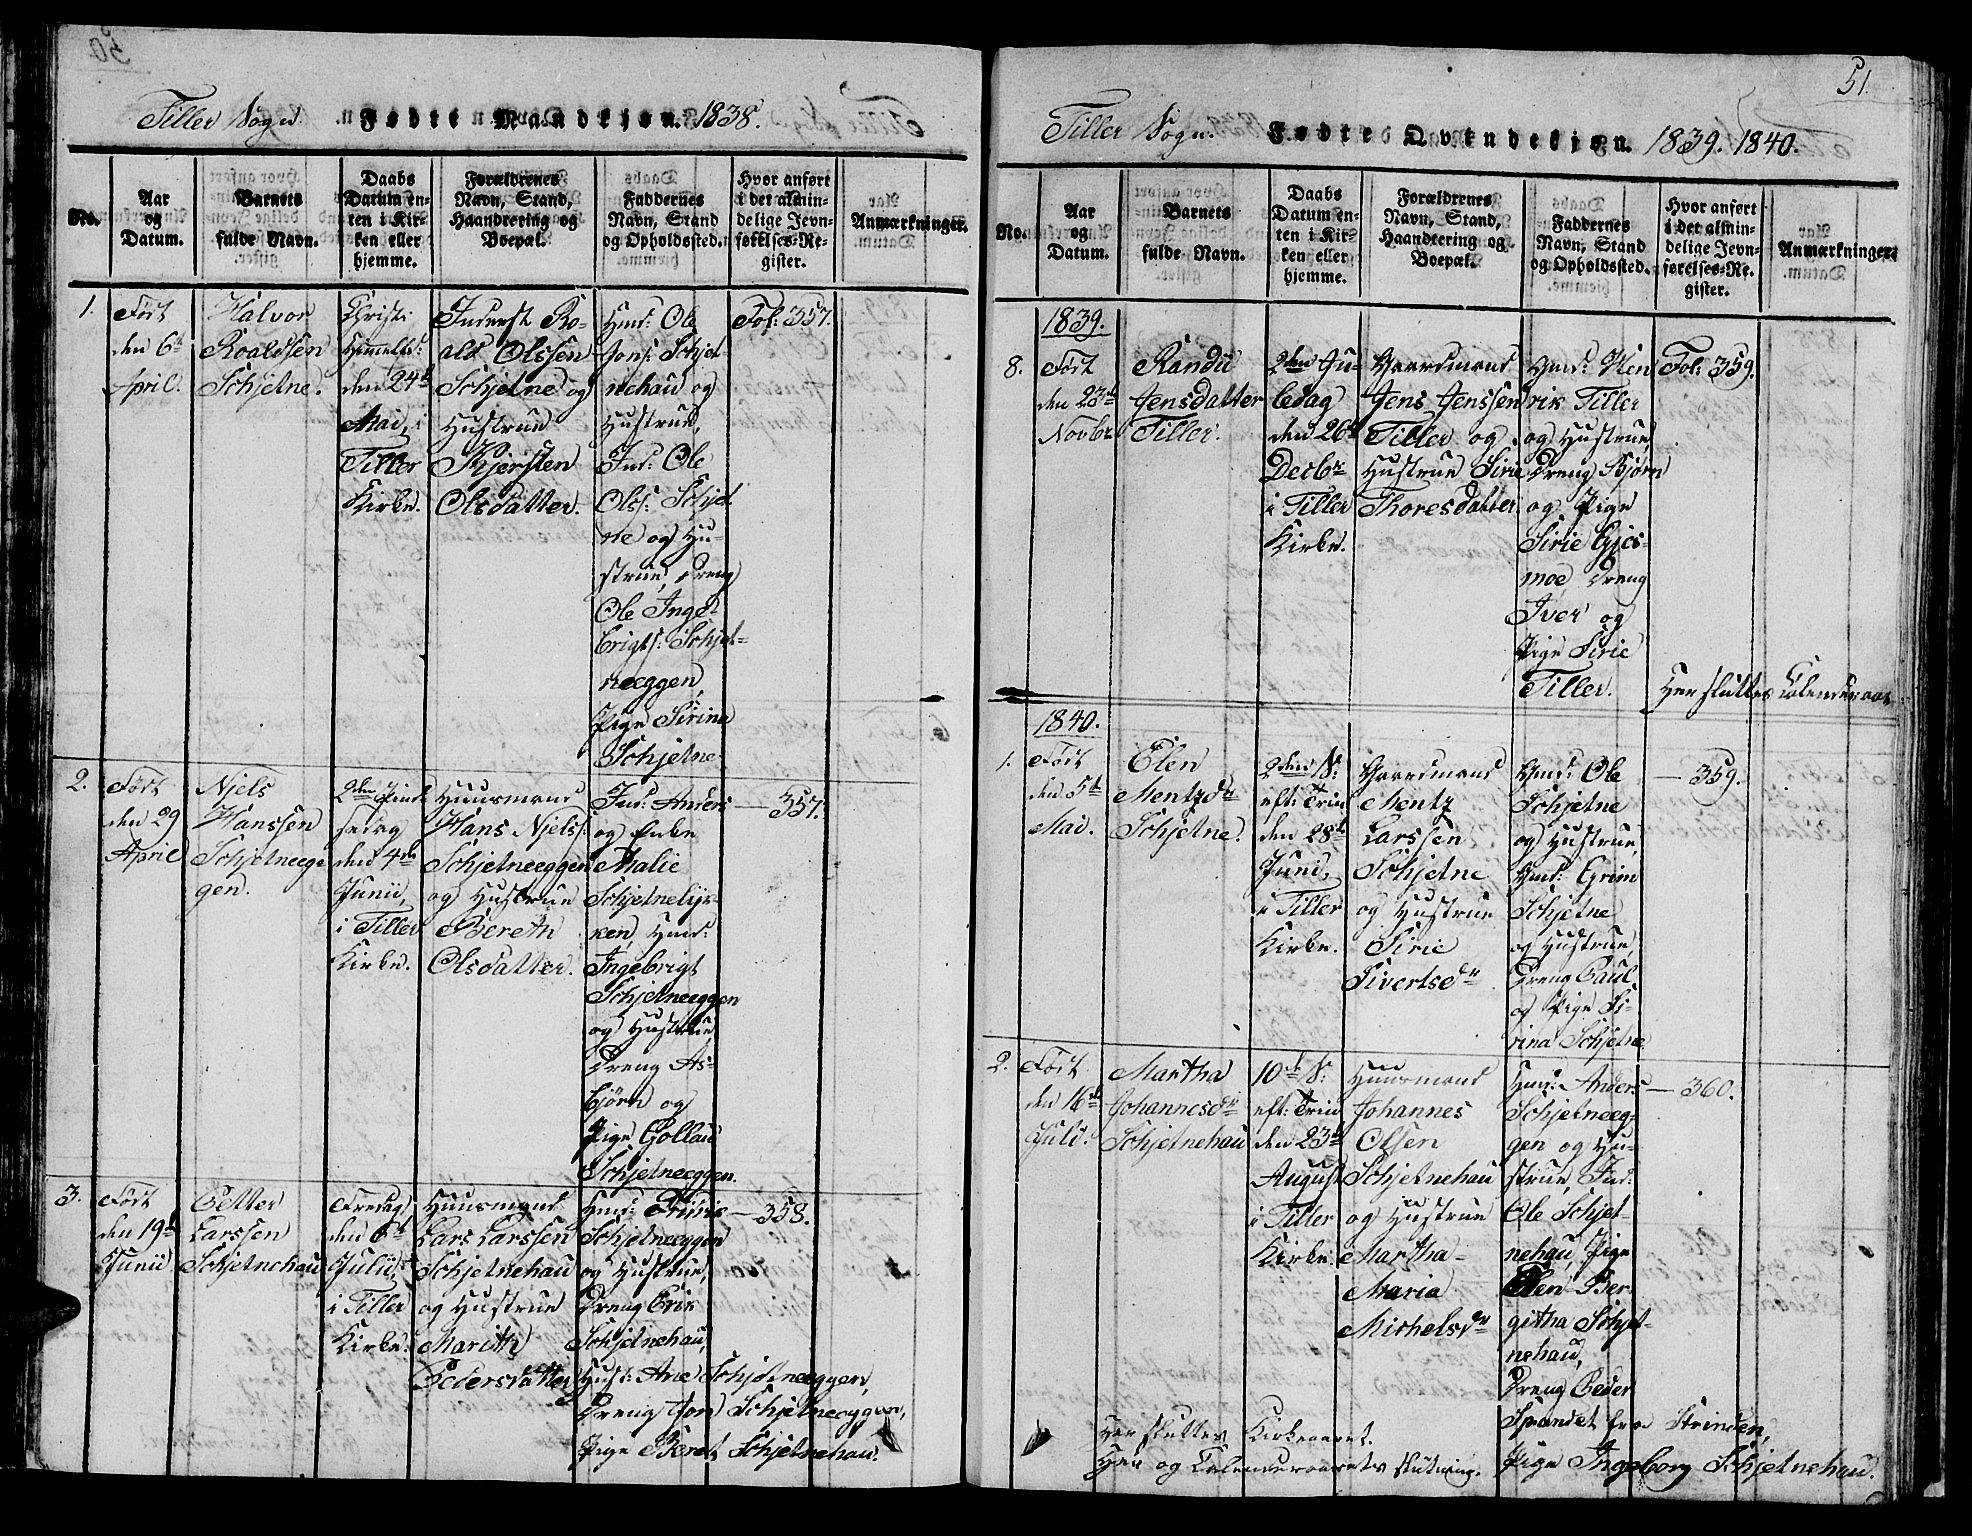 50
Tiller Sogn. Fødte Mandkjøn. 1838.
No.
Aar
og
Datum.
Barnets
fulde Navn.
Daabs
Datum en-
ten i Kir-
ken eller
hjemme.
Forældrenes
Navn, Stand,
Haandtering og
Boepæl.
Faddernes
Navn, Stand
og Opholdssted.
Hvor anført
i det almin-
delige Jevn-
førelses-Re-
gister.
Anmærkninger.
1.
Født
den 6te
April.
Halvor
Roaldsen
Schjetne.
Christi
Himmelfs:
den 24de
Mai, i
Tiller
Kirke.
Inderst Ro-
ald Olssen
Schjetne og
Hustrue
Kjersten
Olsdatter.
Hmd: Ole
Jons: Schjet-
nehau og
Hustrue,
Ind: Ole
Olss: Schjet
ne og Hu-
strue, Dreng
Ole Inge-
brigts: Schjet-
neeggen,
Pige Sirina
Schjetne
Fol: 357.
2.
Født
den 29
April
Njels
Hanssen
Schjetneeg-
gen.
2den Pint-
sedag
den 4de
Junii,
i Tiller
Kirke.
Huusmand
Hans Njelss:
Schjetneeggen
og Hustrue
Bereth
Olsdatter.
Ind: Anders
og Enke
Malie
Schjetnelyk-
ken, Hmd:
Ingebrigt
Schjetneeggen
og Hustrue
Dreng As-
bjørn og
Pige Gollau
Schjetneeggen.
— 357.
3.
Født
den 19de
Junii
Petter
Larssen
Schjetnehau
Fredag
den 6te
Julii,
i Tiller
Kirke.
Huusmand
Lars Larssen
Schjetnehau
og Hustrue
Marith
Pedersdatter
Hmd:
Schjetneeggen
og Hustrue,
Dreng Erik
Schjetnehau,
Hust: Ane Schjetneeggen,
Dreng Jon Schjetneeggen,
Pige Beret Schjetnehau.
— 358.
51.
Tiller Sogn. Fødte Qvindekjøn. 1839. 1840.
No.
Aar
og
Datum.
Barnets
fulde Navn.
Daabs
Datum en-
ten i Kir-
ken eller
hjemme.
Forældrenes
Navn, Stand,
Haandtering og
Boepæl.
Faddernes
Navn, Stand
og Opholdssted.
Hvor anført
i det almin-
delige Jevn-
førelses-Re-
gister.
Anmærkninger.
1839.
8.
Født
den 23de
Novbr
Randii
Jensdatter
Tiller.
2den Ju-
ledag
den 26de
Decbr
i Tiller
Kirke.
Gaardmand
Jens Jenssen
Tiller og
Hustrue Sirie
Thoresdatter
Gmd: Hen
rik Tiller
og Hustrue,
Dreng Bjørn
og Pige
Sirie Gjes-
moe, Dreng
Iver og
Pige Sirie
Tiller.
Fol: 359.
Her sluttes Calenderaar
1840.
1.
Født
den 5te
Mai.
Elen
Mentzdr
Schjetne.
2den S:
eft: Trin
den 28de
Junii,
i Tiller
Kirke.
Gaardmand
Mentz
Larssen
Schjetne
og Hustrue
Sirie
Sivertsdr
Gmd: Ole
Schjetne
og Hustrue,
Gmd: Grim
Schjetne
og Hustrue,
Dreng Paul
og Pige Si-
rina Schjetne
— 359.
2.
Født
den 16de
Julii.
Martha
Johannesdr
Schjetnehau
10de S:
eft: Trin
den 23de
August
i Tiller
Kirke
Huusmand
Johannes
Olsen
Schjetnehau
og Hustrue
Martha
Maria
Michelsdr
Hmd: Anders
Schjetneeg-
gen og Hu-
strue, Ind:
Ole Schjet-
nehau, Pige
Elen Ber-
githa Schjet-
nehau,
Dreng Peder
Spondet fra Strinden,
Pige Ingeborg Schjetnehau.
— 360.
Her sluttes Kirkeaaret.
Her og Calenderaarets slutning.